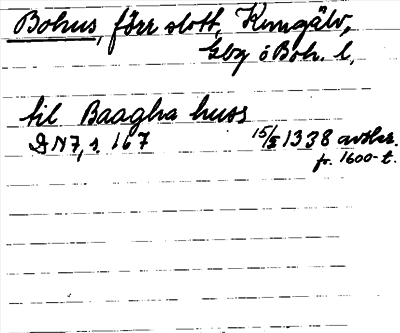 Bohus, förr slott, Kungälv,
Gbg o Boh. l.
til Baagha huss
DN7, s. 167 15/2 1338 avskr.
fr. 1600-t.